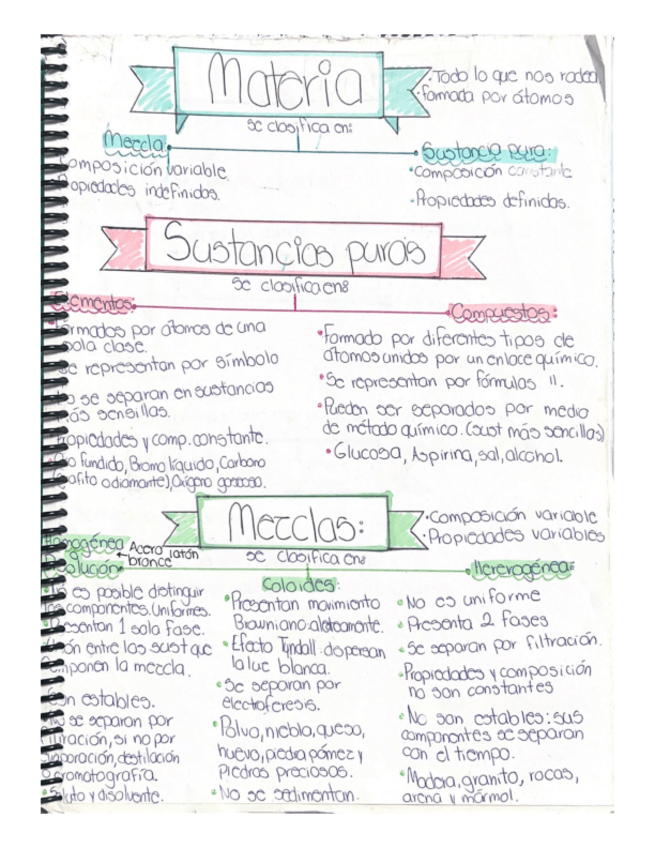 Materia
·Todo lo que nos rodea
·formada por átomos
se clasifica en:
Mezcla:
Composición variable.
Propiedades indefinidas.
Sustancia pura:
·Composición constante
·Propiedades definidas.
Sustancias puras
se clasifica en:
Elementos:
formados por átomos de una
sola clase.
Se representan por símbolo
No se separan en sustancias
más sensillas.
Propiedades y comp. constante.
Oro fundido, Bromo líquido, Carbono
(grafito o diamante), Oxígeno gaseoso.
Compuestos:
·Formado por diferentes tipos de
átomos unidos por un enlace químico.
·Se representan por fórmulas 11.
·Pueden ser separados por medio
de método químico. (sust más sencillas)
·Glucosa, Aspirina, sal, alcohol.
Mezclas:
·Composición variable
·Propiedades variables
se clasifica en:
Homogénea
Disolución
← Acero latón
bronce
·No es posible distinguir
los componentes. Uniformes.
Presentan 1 sola fase.
Unión entre las sust que
componen la mezcla.
Son estables.
No se separan por
filtración, si no por
evaporación, destilación
o cromatografía.
·Soluto y disolvente.
Coloides:
·Presentan movimiento
Brawniano aleatoamente.
·Efecto Tyndall dispersan
la luz blanca.
·Se separan por
electoferesis.
·Polvo, niebla, queso,
huevo, piedra pómez y
Piedras preciosas.
·No se sedimentan.
Hererogénea:
·No es uniforme
·Presenta 2 fases
·Se separan por filtración.
·Propiedades y composición
no son constantes
·No son estables: sus
componentes se separan
con el tiempo.
·Madera, granito, rocas,
arena y mármol.